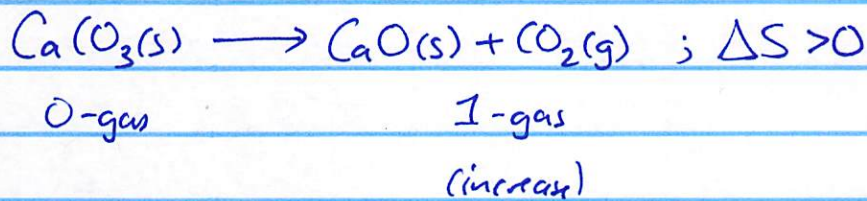 CaCO₃(s) ⟶ CaO(s) + CO₂(g) ; ΔS >0
0-gas 1-gas
(increase)